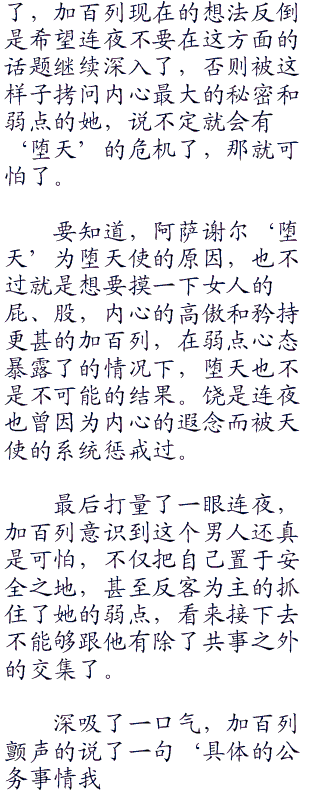 了，加百列现在的想法反倒
是希望连夜不要在这方面的
话题继续深入了，否则被这
样子拷问内心最大的秘密和
弱点的她，说不定就会有
‘堕天’的危机了，那就可
怕了。
要知道，阿萨谢尔‘堕
天’为堕天使的原因，也不
过就是想要摸一下女人的
屁、股，内心的高傲和矜持
更甚的加百列，在弱点心态
暴露了的情况下，堕天也不
是不可能的结果。饶是连夜
也曾因为内心的遐念而被天
使的系统惩戒过。
最后打量了一眼连夜，
加百列意识到这个男人还真
是可怕，不仅把自己置于安
全之地，甚至反客为主的抓
住了她的弱点，看来接下去
不能够跟他有除了共事之外
的交集了。
深吸了一口气，加百列
颤声的说了一句‘具体的公
务事情我